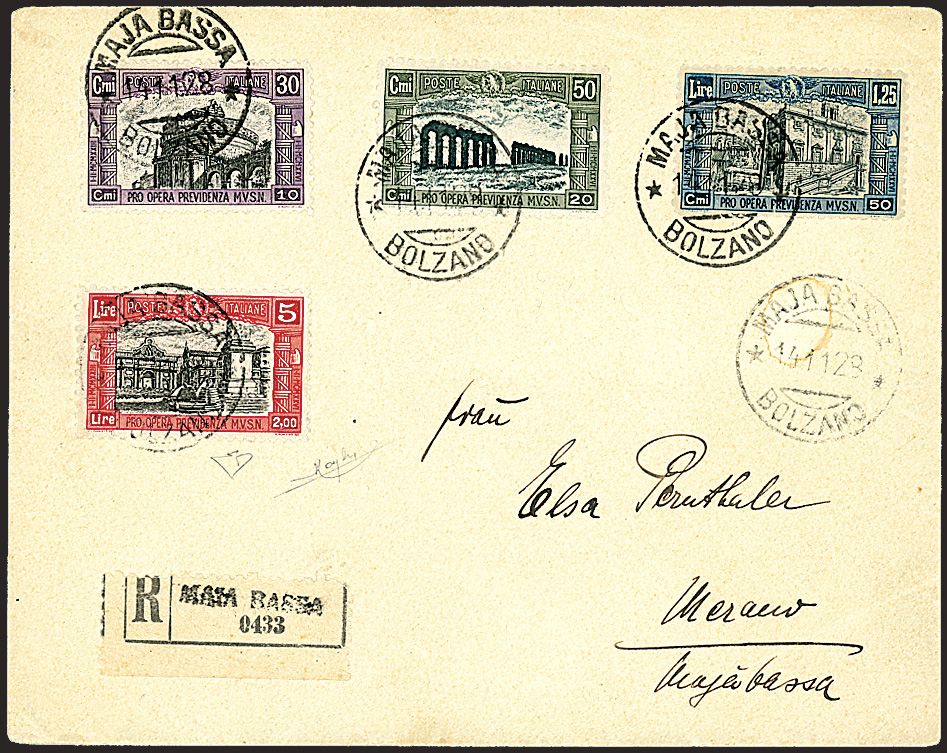 MAJA BASSA
14.11.28
BOLZANO
Cmi POSTE ITALIANE 30
Cmi PRO OPERA PREVIDENZA M.V.S.N. 10
Cmi POSTE ITALIANE 50
Cmi PRO OPERA PREVIDENZA M.V.S.N. 20
BOLZANO
Lire POSTE ITALIANE 1.25
Cmi PRO OPERA PREVIDENZA M.V.S.N. 50
MAJA BASSA
BOLZANO
Lire POSTE ITALIANE 5
Lire PRO OPERA PREVIDENZA M.V.S.N. 2,00
MAJA BASSA
14.11.28
BOLZANO
Frau
Elsa Pernthaler
Merano
Majabassa
R MAIA BASSA
0433